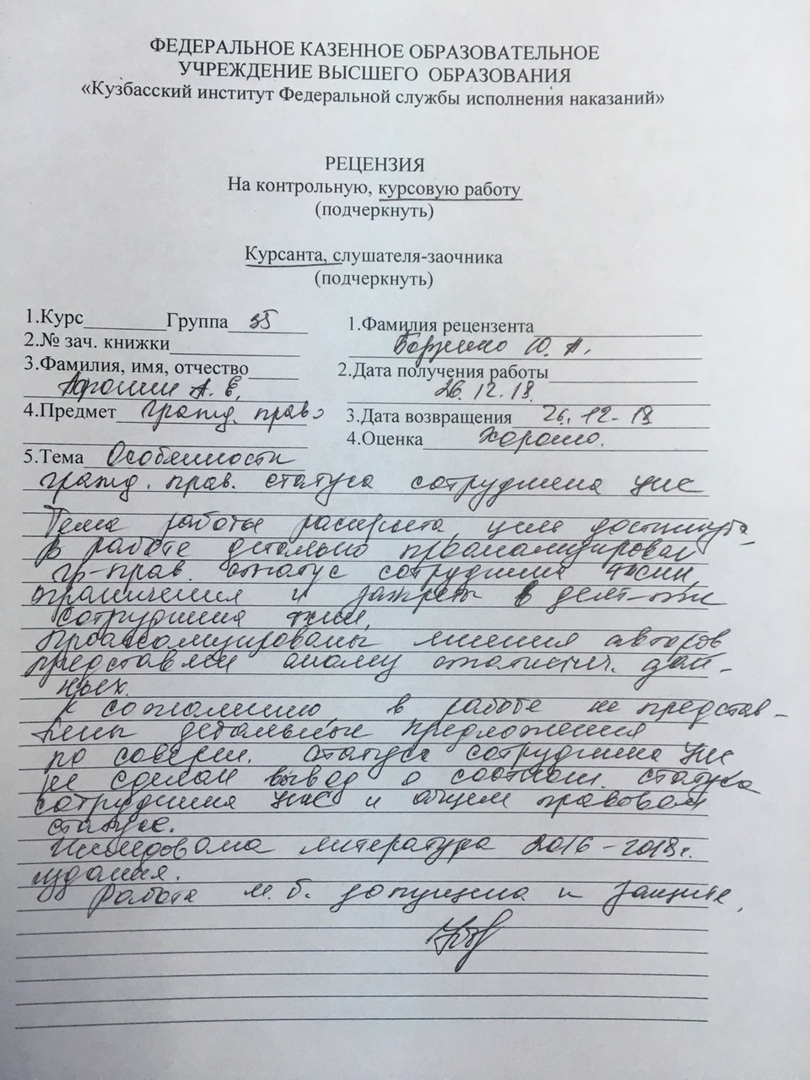 ФЕДЕРАЛЬНОЕ КАЗЕННОЕ ОБРАЗОВАТЕЛЬНОЕ
УЧРЕЖДЕНИЕ ВЫСШЕГО ОБРАЗОВАНИЯ
«Кузбасский институт Федеральной службы исполнения наказаний»
РЕЦЕНЗИЯ
На контрольную, курсовую работу
(подчеркнуть)
Курсанта, слушателя-заочника
(подчеркнуть)
1.Курс Группа 35
2.№ зач. книжки
3.Фамилия, имя, отчество
А. Е.
4.Предмет Гражд. право
5.Тема Особенности
1.Фамилия рецензента
Ю. А.
2.Дата получения работы
26.12.18.
3.Дата возвращения 26.12.18
4.Оценка Хорошо.
гражд. прав. статуса сотрудника УИС
Тема работы раскрыта, цель достигнута.
В работе детально проанализирован
гр-прав. статус сотрудника
ограничения и запреты в деят-ти
сотрудника
Проанализированы мнения авторов
представлен анализ статистич. дан-
ных.
К сожалению в работе не представ-
лены детальные предложения
по соверш. статуса сотрудника УИС
не сделан вывод о соотнош. статуса
сотрудника УИС и общем правовом
статусе.
Исследована литература 2016-2018г.
издания.
Работа м.б. допущена к защите.